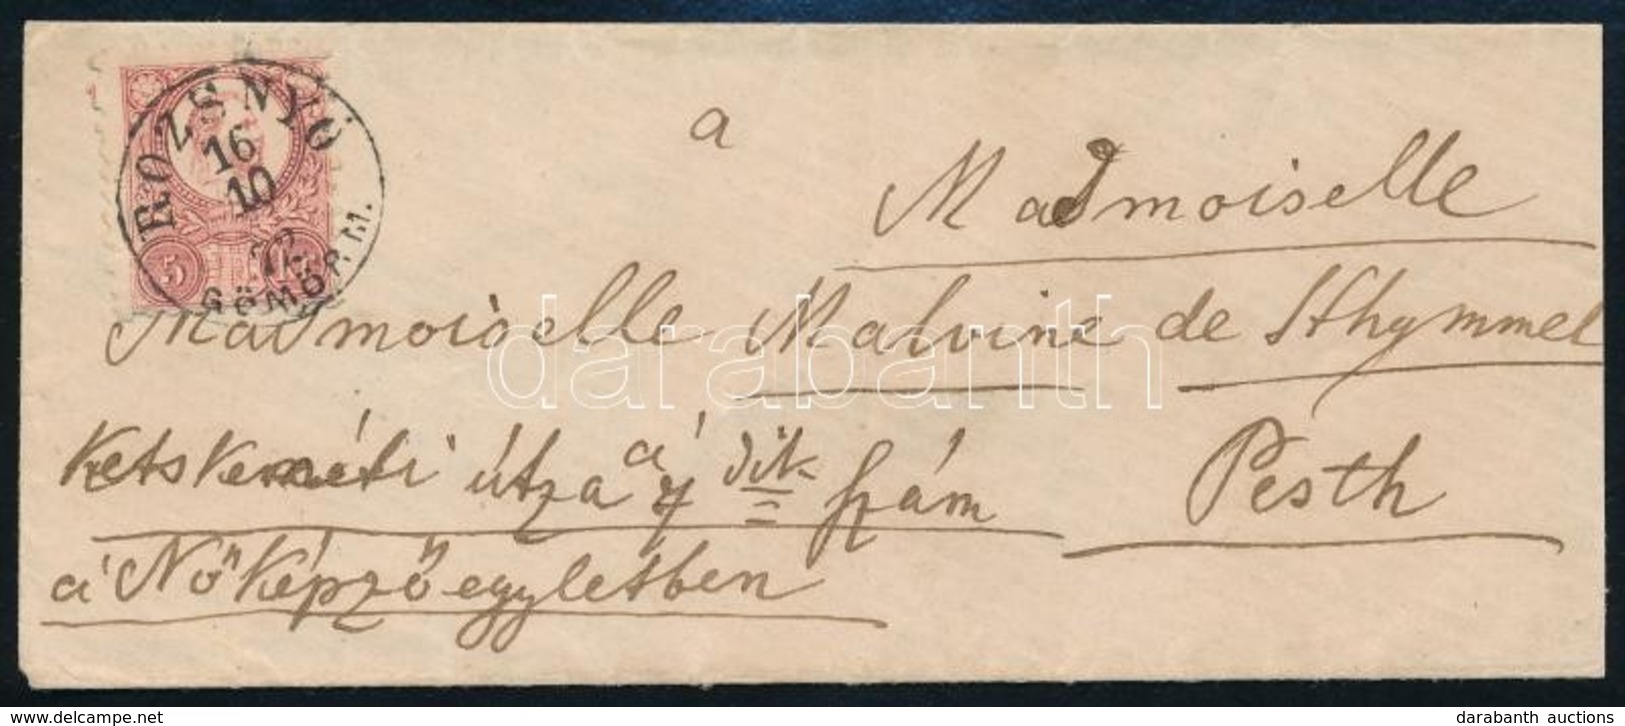 ROZSNYÓ
16
10
72
GÖMÖR M.
5
a
Madmoiselle
Madmoiselle Malvine de Sthymmel
Ketskeméti útza a 7 dik szám Pesth
á Nőképző egyletben
darabanth
delcampe.net
darabanth auctions